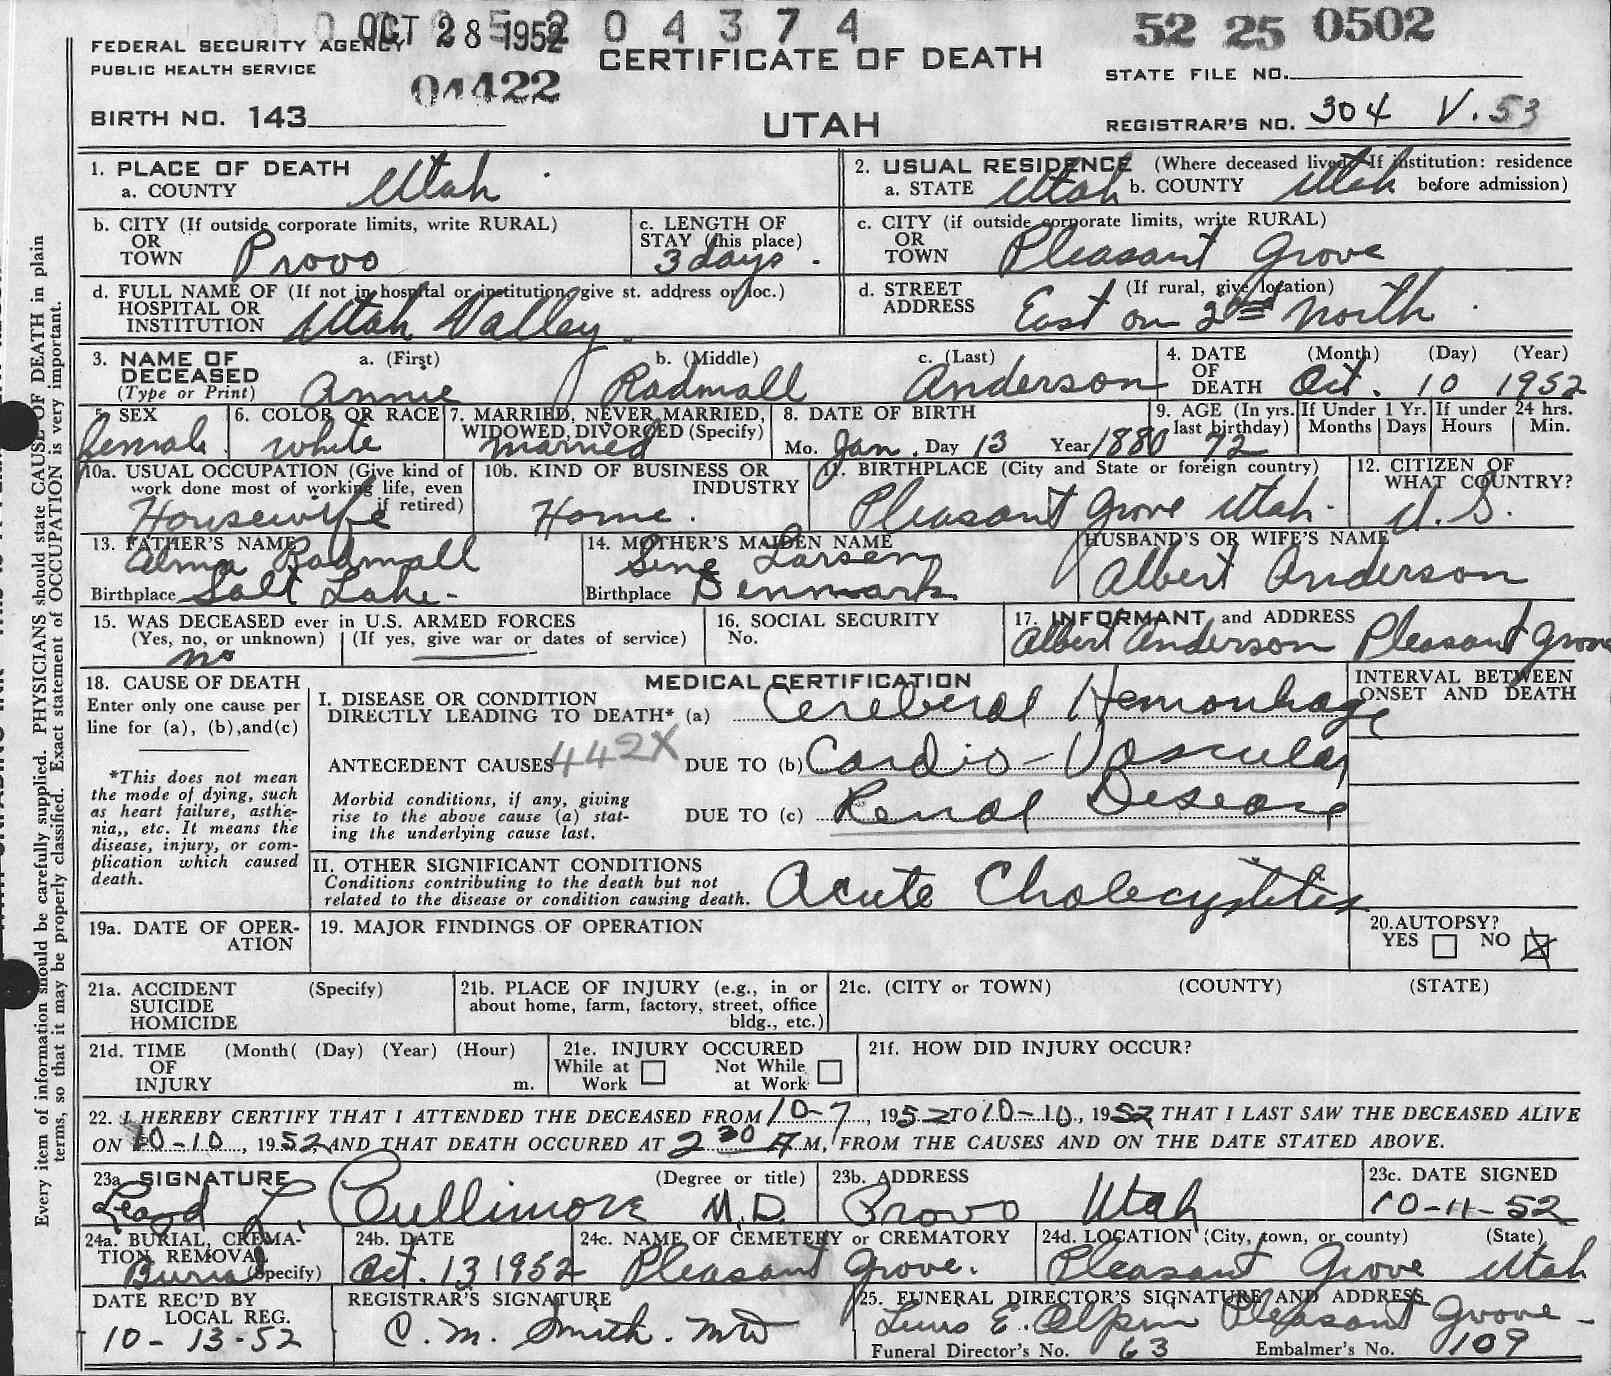 OCT 28 1952 0 4 3 7 4
52 25 0502
FEDERAL SECURITY AGENCY
PUBLIC HEALTH SERVICE
04422
CERTIFICATE OF DEATH
STATE FILE NO.
BIRTH NO. 143
UTAH
REGISTRAR'S NO. 304 V. 53
1. PLACE OF DEATH
a. COUNTY Utah
2. USUAL RESIDENCE (Where deceased lived. If institution: residence
a. STATE Utah b. COUNTY Utah before admission)
b. CITY (If outside corporate limits, write RURAL)
OR
TOWN Provo
c. LENGTH OF
STAY (this place)
3 days
c. CITY (if outside corporate limits, write RURAL)
OR
TOWN Pleasant Grove
d. FULL NAME OF (If not in hospital or institution, give st. address or loc.)
HOSPITAL OR
INSTITUTION Utah Valley
d. STREET (If rural, give location)
ADDRESS East on 2nd North
3. NAME OF
DECEASED
(Type or Print)
a. (First) b. (Middle) c. (Last)
Annie Radmall Anderson
4. DATE (Month) (Day) (Year)
OF
DEATH Oct. 10 1952
5. SEX
female
6. COLOR OR RACE
white
7. MARRIED, NEVER MARRIED,
WIDOWED, DIVORCED (Specify)
married
8. DATE OF BIRTH
Mo. Jan. Day 13 Year 1880
9. AGE (In yrs.
last birthday)
72
If Under 1 Yr.
Months Days
If under 24 hrs.
Hours Min.
10a. USUAL OCCUPATION (Give kind of
work done most of working life, even
if retired)
Housewife
10b. KIND OF BUSINESS OR
INDUSTRY
Home.
11. BIRTHPLACE (City and State or foreign country)
Pleasant Grove Utah.
12. CITIZEN OF
WHAT COUNTRY?
U. S.
13. FATHER'S NAME
Alma Radmall
Birthplace Salt Lake
14. MOTHER'S MAIDEN NAME
Sine Larsen
Birthplace Denmark
HUSBAND'S OR WIFE'S NAME
Albert Anderson
15. WAS DECEASED ever in U.S. ARMED FORCES
(Yes, no, or unknown) (If yes, give war or dates of service)
no
16. SOCIAL SECURITY
No.
17. INFORMANT and ADDRESS
Albert Anderson Pleasant Grove
18. CAUSE OF DEATH
Enter only one cause per
line for (a), (b), and (c)
*This does not mean
the mode of dying, such
as heart failure, asthe-
nia,, etc. It means the
disease, injury, or com-
plication which caused
death.
MEDICAL CERTIFICATION
INTERVAL BETWEEN
ONSET AND DEATH
I. DISEASE OR CONDITION
DIRECTLY LEADING TO DEATH* (a) Cereberal Hemorrhage
ANTECEDENT CAUSES 442X DUE TO (b) Cardio-Vascular
Morbid conditions, if any, giving
rise to the above cause (a) stat-
ing the underlying cause last.
DUE TO (c) Renal Desease
II. OTHER SIGNIFICANT CONDITIONS
Conditions contributing to the death but not
related to the disease or condition causing death.
Acute Cholecystitis
19a. DATE OF OPER-
ATION
19. MAJOR FINDINGS OF OPERATION
20. AUTOPSY?
YES NO X
21a. ACCIDENT (Specify)
SUICIDE
HOMICIDE
21b. PLACE OF INJURY (e.g., in or
about home, farm, factory, street, office
bldg., etc.)
21c. (CITY or TOWN) (COUNTY) (STATE)
21d. TIME (Month( (Day) (Year) (Hour)
OF
INJURY m.
21e. INJURY OCCURED
While at Not While
Work at Work
21f. HOW DID INJURY OCCUR?
22. I HEREBY CERTIFY THAT I ATTENDED THE DECEASED FROM 10-7, 1952 TO 10-10, 1952 THAT I LAST SAW THE DECEASED ALIVE
ON 10-10, 1952, AND THAT DEATH OCCURED AT 2 30 A M, FROM THE CAUSES AND ON THE DATE STATED ABOVE.
23a SIGNATURE (Degree or title)
L. Cullimore M.D.
23b. ADDRESS
Provo Utah
23c. DATE SIGNED
10-11-52
24a. BURIAL, CREMA-
TION, REMOVAL
(Specify)
Burial
24b. DATE
Oct. 13 1952
24c. NAME OF CEMETERY or CREMATORY
Pleasant Grove.
24d. LOCATION (City, town, or county) (State)
Pleasant Grove Utah
DATE REC'D BY
LOCAL REG.
10-13-52
REGISTRAR'S SIGNATURE
C. M. Smith. MD
25. FUNERAL DIRECTOR'S SIGNATURE AND ADDRESS
E. Olpin Pleasant Grove
Funeral Director's No. 63 Embalmer's No. 109
Every item of information should be carefully supplied. PHYSICIANS should state CAUSE OF DEATH in plain
terms, so that it may be properly classified. Exact statement of OCCUPATION is very important.